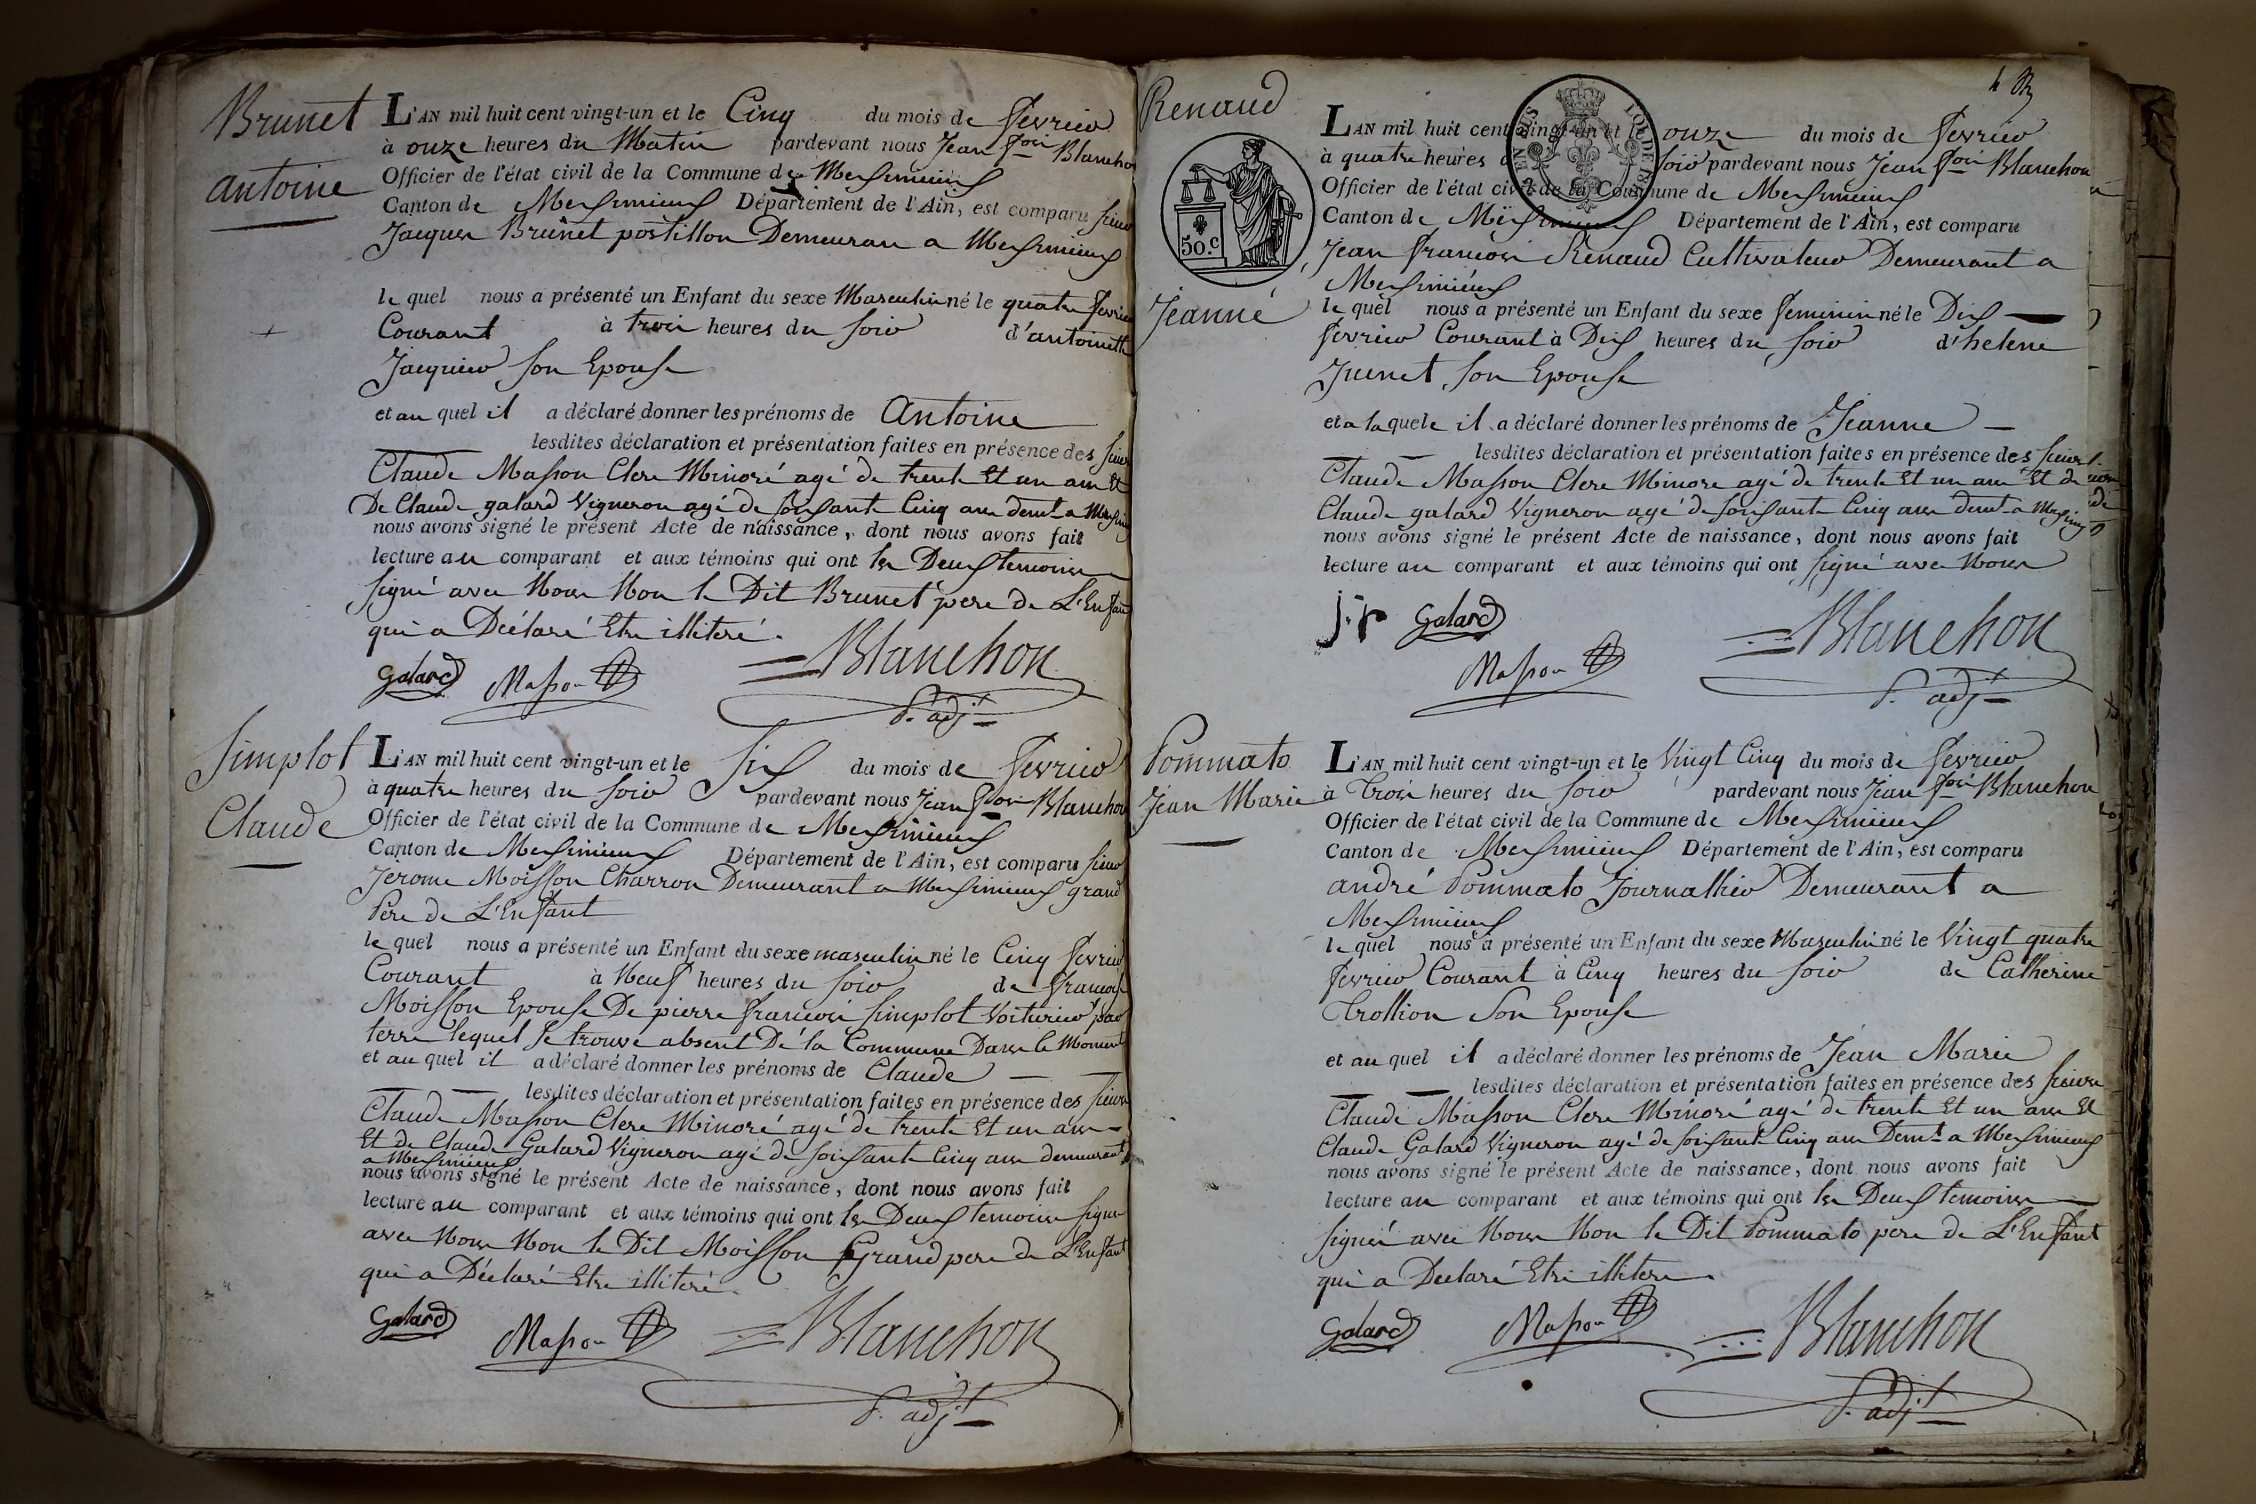 Brunet
antoine
L'AN mil huit cent vingt-un et le Cinq du mois de fevrier
à onze heures du Matin pardevant nous Jean fois Blanchon
Officier de l'état civil de la Commune de Meximieux
Canton de Meximieux Département de l'Ain, est comparu sieur
Jacques Brunet postillon Demeurant a Meximieux
le quel nous a présenté un Enfant du sexe Masculin né le quatre fevrier
Courant à trois heures du soir d'antoinette
Jacquier son Epouse
et au quel il a déclaré donner les prénoms de Antoine
lesdites déclaration et présentation faites en présence des sieurs
Claude Masson Clerc Minoré agé de trente Et un ans Et
De Claude galard Vigneron agé de soixante Cinq ans demt a
nous avons signé le présent Acte de naissance, dont nous avons fait
lecture au comparant et aux témoins qui ont les Deux temoins
signé avec Nous Non le Dit Brunet pere de L'Enfant
qui a Déclaré Etre illiteré.
Galard Masson Blanchon
adjt
Simplot
Claude
L'AN mil huit cent vingt-un et le Six du mois de fevrier
à quatre heures du soir pardevant nous Jean fois Blanchon
Officier de l'état civil de la Commune de Meximieux
Canton de Meximieux Département de l'Ain, est comparu sieur
Jerome Moisson Charron Demeurant a Meximieux grand
Père de L'Enfant
le quel nous a présenté un Enfant du sexe masculin né le Cinq fevrier
Courant à Neuf heures du soir de
Moisson Epouse De pierre francois simplot Voiturier par
terre lequel se trouve absent De la Commune Dans le Moment
et au quel il a déclaré donner les prénoms de Claude
lesdites déclaration et présentation faites en présence des sieurs
Claude Masson Clerc Minoré agé de trente Et un ans
Et de Claude Galard Vigneron agé de soixante Cinq ans demeurant
a Meximieux
nous avons signé le présent Acte de naissance, dont nous avons fait
lecture au comparant et aux témoins qui ont les Deux temoins signé
avec Nous Non le Dit Moisson Grand pere de L'Enfant
qui a Déclaré Etre illiteré.
Galard Masson Blanchon
adjt
Renaud
Jeanne
50.c
L'AN mil huit cent vingt-un et le onze du mois de fevrier
à quatre heures du soir pardevant nous Jean fois Blanchon
Officier de l'état civil de la Commune de Meximieux
Canton de Meximieux Département de l'Ain, est comparu
Jean francois Renaud Cultivateur Demeurant a
Meximieux
le quel nous a présenté un Enfant du sexe feminin né le Dix
fevrier Courant à Dix heures du soir d'helene
Juenet son Epouse
et a la quele il a déclaré donner les prénoms de Jeanne
lesdites déclaration et présentation faites en présence des sieurs
Claude Masson Clerc Minoré agé de trente Et un ans Et de
Claude galard Vigneron agé de soixante Cinq ans demt a
nous avons signé le présent Acte de naissance, dont nous avons fait
lecture au comparant et aux témoins qui ont signé avec Nous
j.r Galard Blanchon
Masson
adjt
Pommato
Jean Marie
L'AN mil huit cent vingt-un et le Vingt Cinq du mois de fevrier
à Trois heures du soir pardevant nous Jean fois Blanchon
Officier de l'état civil de la Commune de Meximieux
Canton de Meximieux Département de l'Ain, est comparu
andré Pommato Journallier Demeurant a
Meximieux
le quel nous a présenté un Enfant du sexe Masculin né le Vingt quatre
fevrier Courant à Cinq heures du soir de Catherine
Trollion Son Epouse
et au quel il a déclaré donner les prénoms de Jean Marie
lesdites déclaration et présentation faites en présence des sieurs
Claude Masson Clerc Minoré agé de trente Et un ans Et
Claude Galard Vigneron agé de soixante Cinq ans Demt a Meximieux
nous avons signé le présent Acte de naissance, dont nous avons fait
lecture au comparant et aux témoins qui ont les Deux temoins
signé avec Nous Non le Dit Pommato pere de L'Enfant
qui a Declaré Etre illiteré.
Galard Masson Blanchon
adjt